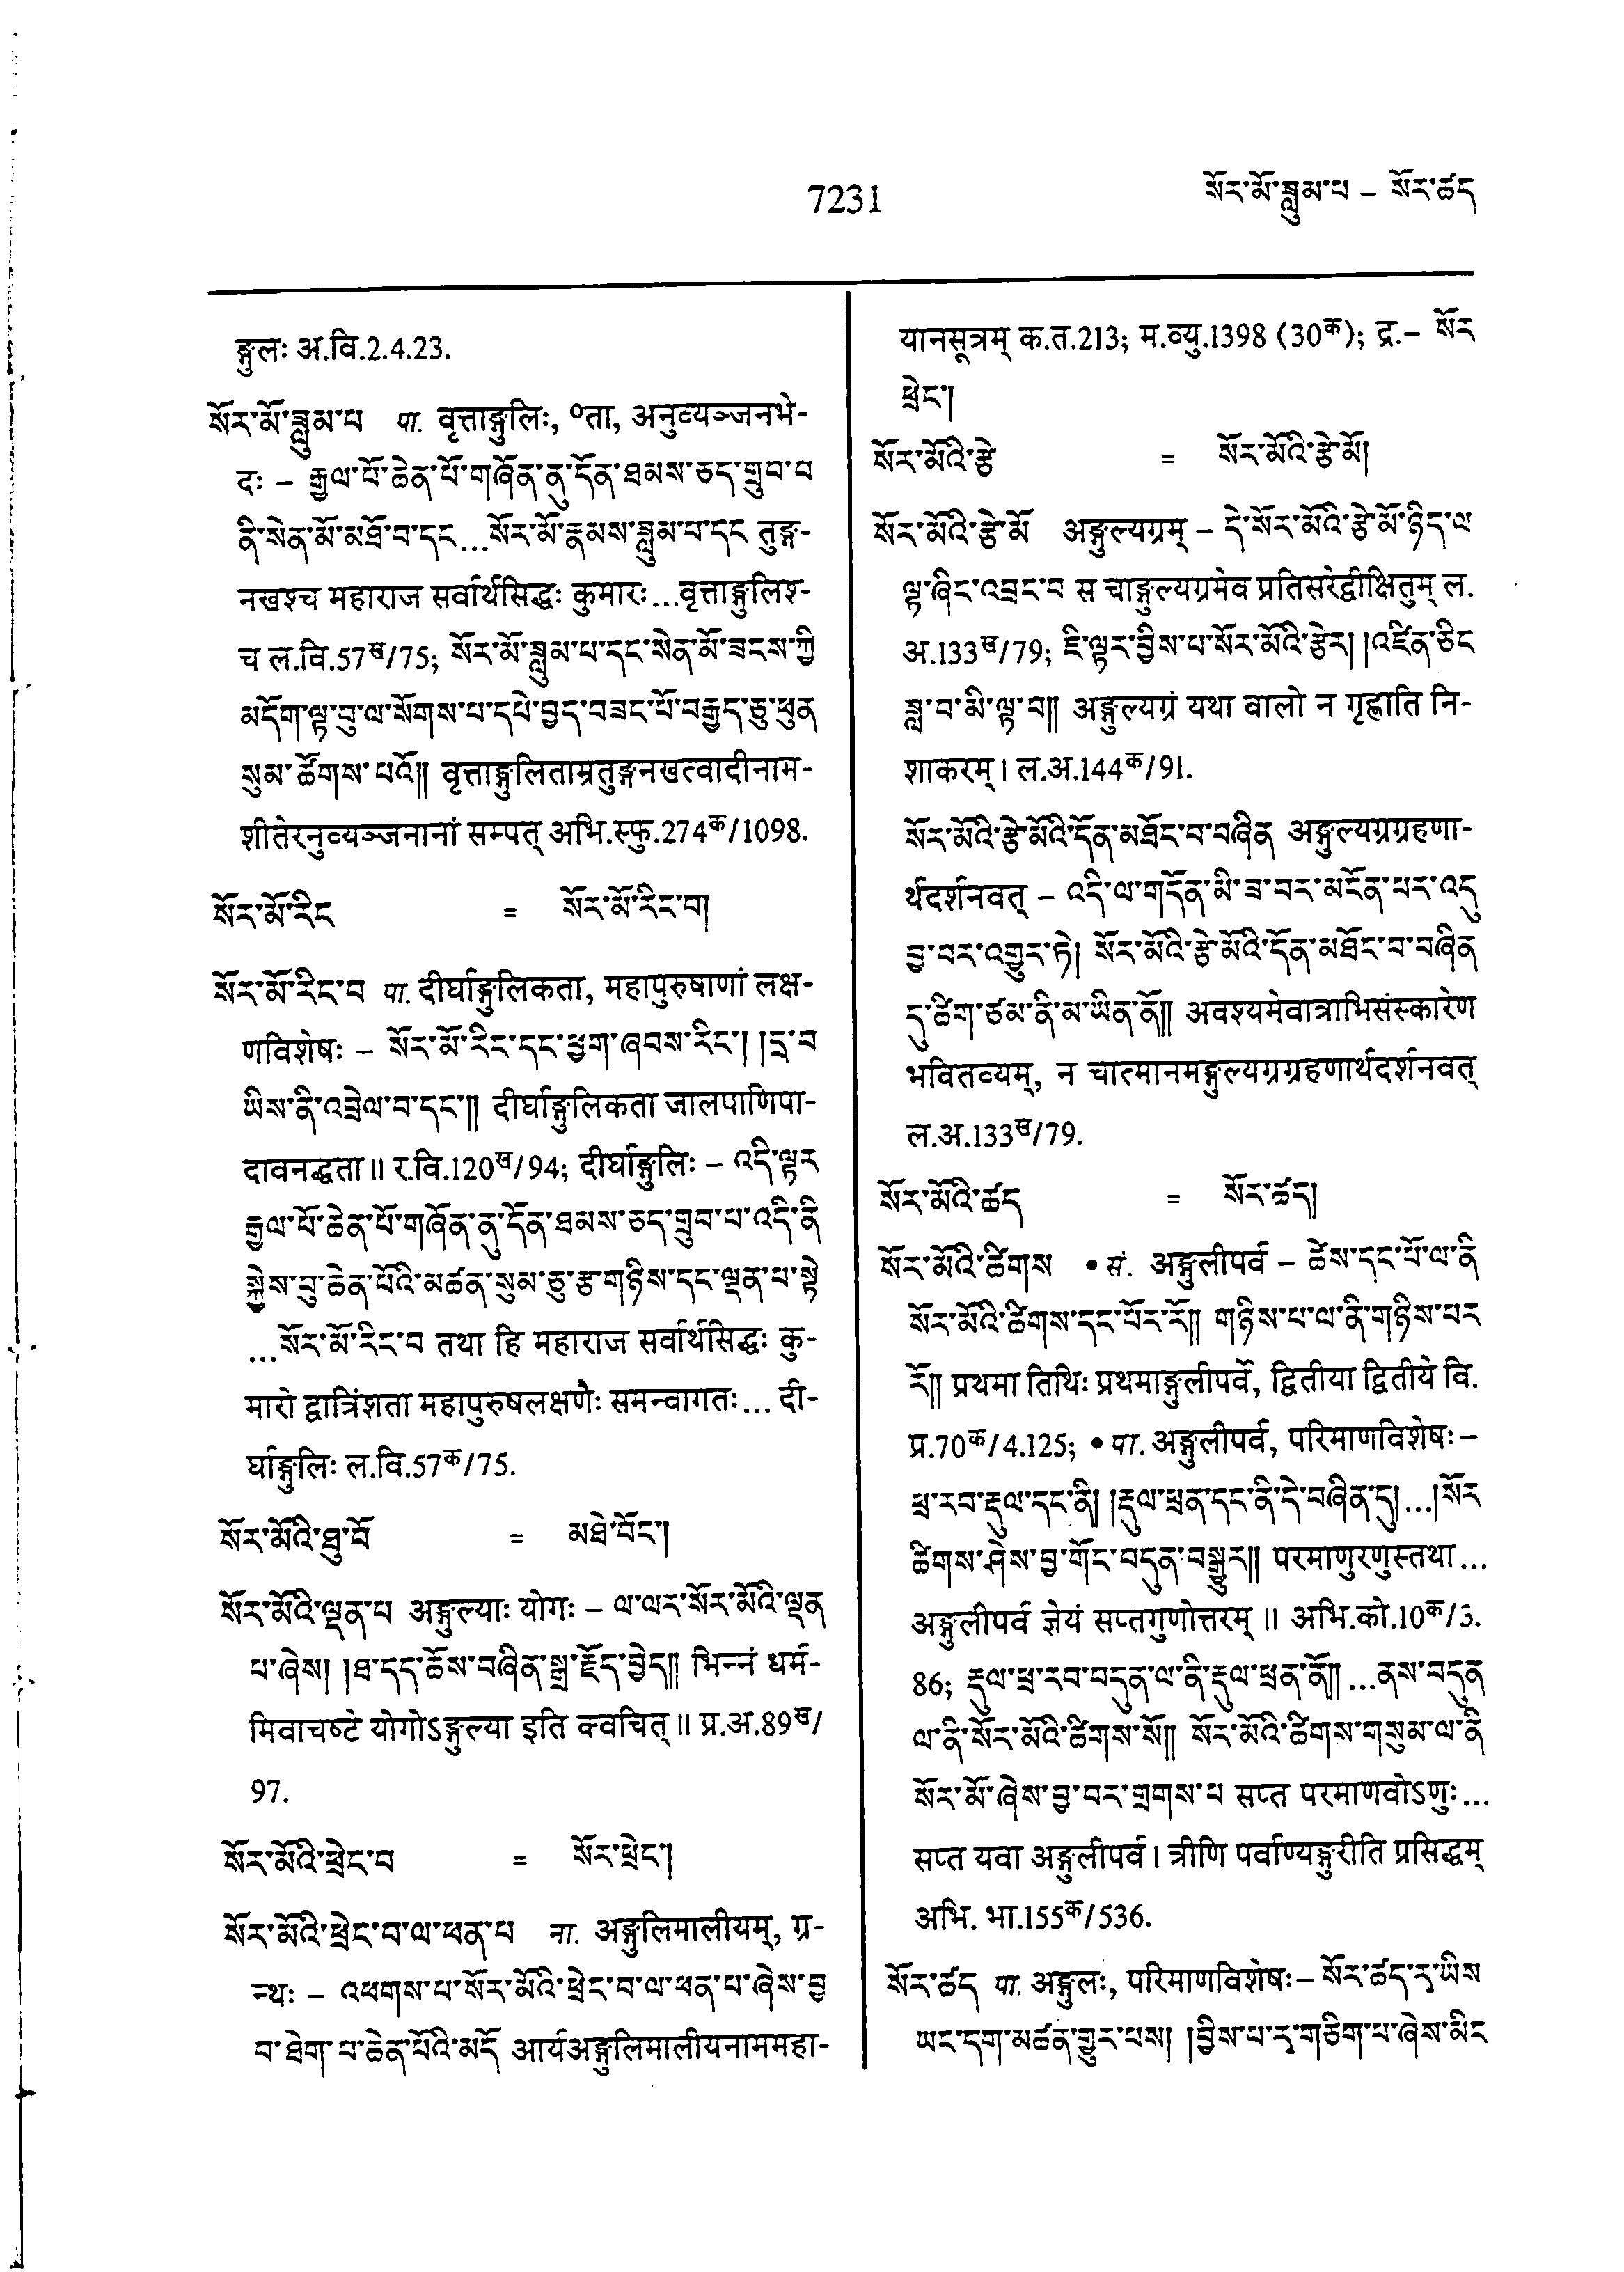 7231
སོར་མོ་ཟླུམ་པ – སོར་ཚད
ङ्गुलः अ.वि.2.4.23.
སོར་མོ་ཟླུམ་པ पा. वृत्ताङ्गुलिः, ०ता, अनुव्यञ्जनभे-
दः – རྒྱལ་པོ་ཆེན་པོ་གཞོན་ནུ་དོན་ཐམས་ཅད་གྲུབ་པ
ནི་སེན་མོ་མཐོ་བ་དང...སོར་མོ་རྣམས་ཟླུམ་པ་དང तुङ्ग-
नखश्च महाराज सर्वार्थसिद्धः कुमारः...वृत्ताङ्गुलिश्-
च ल.वि.57ख/75; སོར་མོ་ཟླུམ་པ་དང་སེན་མོ་ཟངས་ཀྱི
མདོག་ལྟ་བུ་ལ་སོགས་པ་དཔེ་བྱད་བཟང་པོ་བརྒྱད་ཅུ་ཕུན
སུམ་ཚོགས་པའོ།། वृत्ताङ्गुलिताम्रतुङ्गनखत्वादीनाम-
शीतेरनुव्यञ्जनानां सम्पत् अभि.स्फु.274क/1098.
སོར་མོ་རིང = སོར་མོ་རིང་བ།
སོར་མོ་རིང་བ पा. दीर्घाङ्गुलिकता, महापुरुषाणां लक्ष-
णविशेषः – སོར་མོ་རིང་དང་ཕྱག་ཞབས་རིང་། །དྲ་བ
ཡིས་ནི་འབྲེལ་བ་དང་།། दीर्घाङ्गुलिकता जालपाणिपा-
दावनद्धता॥ र.वि.120ख/94; दीर्घाङ्गुलिः – འདི་ལྟར
རྒྱལ་པོ་ཆེན་པོ་གཞོན་ནུ་དོན་ཐམས་ཅད་གྲུབ་པ་འདི་ནི
སྐྱེས་བུ་ཆེན་པོའི་མཚན་སུམ་ཅུ་རྩ་གཉིས་དང་ལྡན་པ་སྟེ
...སོར་མོ་རིང་བ तथा हि महाराज सर्वार्थसिद्धः कु-
मारो द्वात्रिंशता महापुरुषलक्षणैः समन्वागतः... दी-
र्घाङ्गुलिः ल.वि.57क/75.
སོར་མོའི་ཐུ་བོ = མཐེ་བོང་།
སོར་མོའི་ལྡན་པ अङ्गुल्याः योगः – ལ་ལར་སོར་མོའི་ལྡན
པ་ཞེས། །ཐ་དད་ཆོས་བཞིན་སྒྲ་རྗོད་བྱེད།། भिन्नं धर्म-
मिवाचष्टे योगोऽङ्गुल्या इति क्वचित्॥ प्र.अ.89ख/
97.
སོར་མོའི་ཕྲེང་བ = སོར་ཕྲེང་།
སོར་མོའི་ཕྲེང་བ་ལ་ཕན་པ ना. अङ्गुलिमालीयम्, ग्र-
न्थः – འཕགས་པ་སོར་མོའི་ཕྲེང་བ་ལ་ཕན་པ་ཞེས་བྱ
བ་ཐེག་པ་ཆེན་པོའི་མདོ आर्यअङ्गुलिमालीयनाममहा-
यानसूत्रम् क.त.213; म.व्यु.1398 (30क); द्र.– སོར
ཕྲེང་།
སོར་མོའི་རྩེ = སོར་མོའི་རྩེ་མོ།
སོར་མོའི་རྩེ་མོ अङ्गुल्यग्रम् – དེ་སོར་མོའི་རྩེ་མོ་ཉིད་ལ
ལྟ་ཞིང་འབྲང་བ स चाङ्गुल्यग्रमेव प्रतिसरेद्वीक्षितुम् ल.
अ.133ख/79; ཇི་ལྟར་བྱིས་པ་སོར་མོའི་རྩེར། །འཛིན་ཅིང
ཟླ་བ་མི་ལྟ་བ།། अङ्गुल्यग्रं यथा बालो न गृह्णाति नि-
शाकरम्। ल.अ.144क/91.
སོར་མོའི་རྩེ་མོའི་དོན་མཐོང་བ་བཞིན अङ्गुल्यग्रग्रहणा-
र्थदर्शनवत् – འདི་ལ་གདོན་མི་ཟ་བར་མངོན་པར་འདུ
བྱ་བར་འགྱུར་ཏེ། སོར་མོའི་རྩེ་མོའི་དོན་མཐོང་བ་བཞིན
དུ་ཚིག་ཙམ་ནི་མ་ཡིན་ནོ།། अवश्यमेवात्राभिसंस्कारेण
भवितव्यम्, न चात्मानमङ्गुल्यग्रग्रहणार्थदर्शनवत्
ल.अ.133ख/79.
སོར་མོའི་ཚད = སོར་ཚད།
སོར་མོའི་ཚིགས • सं. अङ्गुलीपर्व – ཚེས་དང་པོ་ལ་ནི
སོར་མོའི་ཚིགས་དང་པོར་རོ།། གཉིས་པ་ལ་ནི་གཉིས་པར
རོ།། प्रथमा तिथिः प्रथमाङ्गुलीपर्वे, द्वितीया द्वितीये वि.
प्र.70क/4.125; • पा. अङ्गुलीपर्व, परिमाणविशेषः –
ཕྲ་རབ་རྡུལ་དང་ནི། །རྡུལ་ཕྲན་དང་ནི་དེ་བཞིན་དུ། ...།སོར
ཚིགས་ཤེས་བྱ་གོང་བདུན་བསྒྱུར།། परमाणुरणुस्तथा...
अङ्गुलीपर्व ज्ञेयं सप्तगुणोत्तरम्॥ अभि.को.10क/3.
86; རྡུལ་ཕྲ་རབ་བདུན་ལ་ནི་རྡུལ་ཕྲན་ནོ།། ...ནས་བདུན
ལ་ནི་སོར་མོའི་ཚིགས་སོ།། སོར་མོའི་ཚིགས་གསུམ་ལ་ནི
སོར་མོ་ཞེས་བྱ་བར་གྲགས་པ सप्त परमाणवोऽणुः...
सप्त यवा अङ्गुलीपर्व। त्रीणि पर्वाण्यङ्गुरीति प्रसिद्धम्
अभि. भा.155क/536.
སོར་ཚད पा. अङ्गुलः, परिमाणविशेषः– སོར་ཚད་རྭ་ཡིས
ཡང་དག་མཚན་གྱུར་པས། །བྱིས་པ་རྭ་གཅིག་པ་ཞེས་མིང